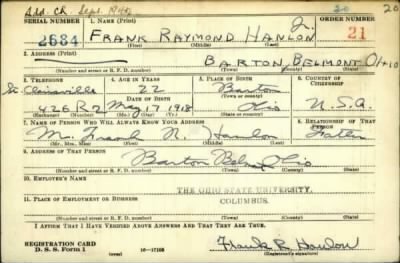 Add. Ch. Sept. 1940
20
20
SERIAL NUMBER 1. NAME (Print) Jr. ORDER NUMBER
2684 FRANK RAYMOND HANLON 21
(First) (Middle) (Last)
2. ADDRESS (Print)
BARTON, BELMONT, OHIO
(Number and street or R. F. D. number) (Town) (County) (State)
3. TELEPHONE 4. AGE IN YEARS 5. PLACE OF BIRTH 6. COUNTRY OF CITIZENSHIP
St. Clairsville 22 Barton
DATE OF BIRTH (Town or county)
426 R2 May 17 1918 Ohio U.S.A.
(Exchange) (Number) (Mo.) (Day) (Yr.) (State or country)
7. NAME OF PERSON WHO WILL ALWAYS KNOW YOUR ADDRESS 8. RELATIONSHIP OF THAT PERSON
Mr. Frank R. Hanlon Father
(Mr., Mrs., Miss) (First) (Middle) (Last)
9. ADDRESS OF THAT PERSON
Barton Ohio
(Number and street or R. F. D. number) (Town) (County) (State)
10. EMPLOYER'S NAME
THE OHIO STATE UNIVERSITY,
11. PLACE OF EMPLOYMENT OR BUSINESS COLUMBUS.
(Number and street or R. F. D. number) (Town) (County) (State)
I AFFIRM THAT I HAVE VERIFIED ABOVE ANSWERS AND THAT THEY ARE TRUE.
REGISTRATION CARD
D. S. S. Form 1 16-17105 Frank R Hanlon
(Registrant's signature)